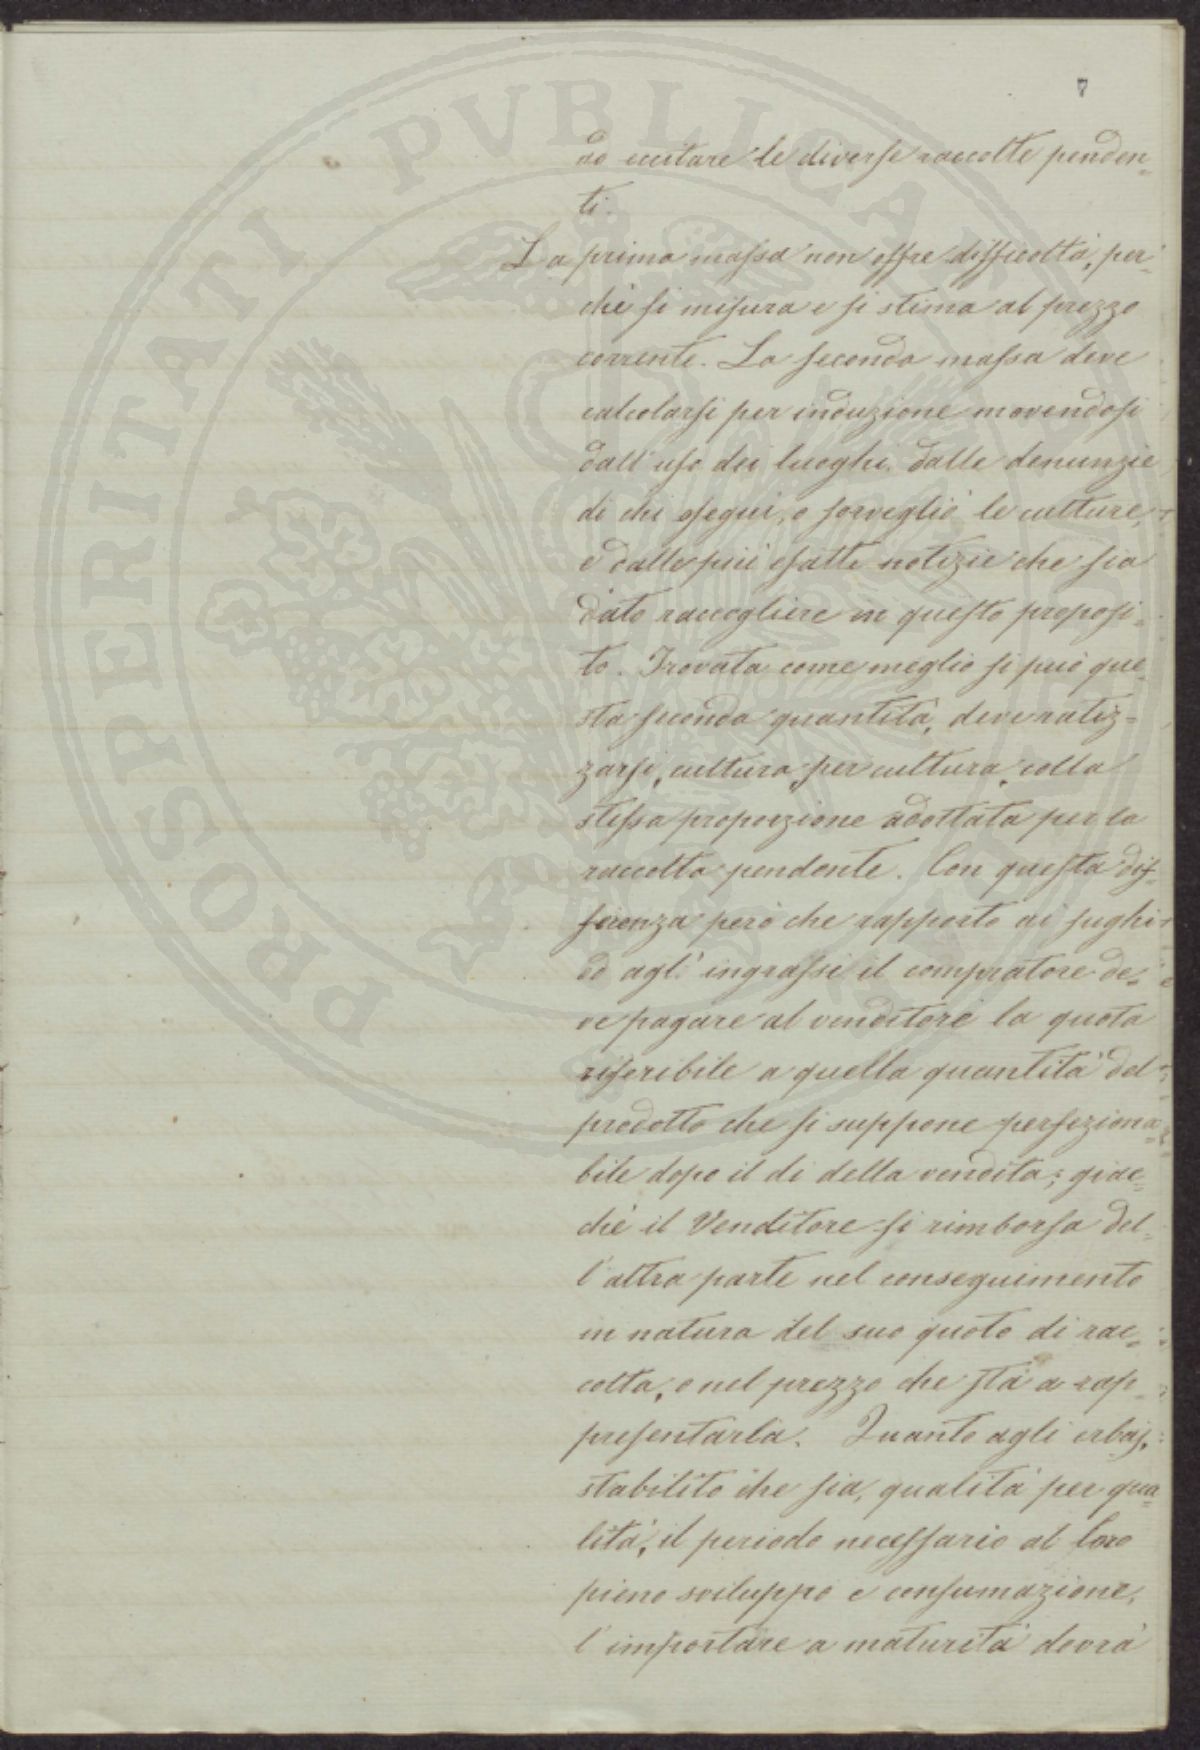 7
ad eccitare le diverse raccolte penden=
ti.
La prima massa non offre difficoltà, per=
chè si misura e si stima al prezzo
corrente. La seconda massa deve
calcolarsi per induzione movendosi
dall'uso dei luoghi, dalle denunzie
di chi esegui, o sorvegliò le culture,
e dalle più esatte notizie che sia
dato raccogliere in questo proposi=
to. Trovata come meglio si può que=
sta seconda quantità, deve ratiz=
zarsi, cultura per cultura, colla
stessa proporzione adottata per la
raccolta pendente. Con questa dif=
ferenza però che rapporto ai sughi
ed agl'ingrassi il compratore de=
ve pagare al venditore la quota
riferibile a quella quantità del
prodotto che si suppone perfeziona=
bile dopo il dì della vendita; giac=
chè il Venditore si rimborsa del=
l'altra parte nel conseguimento
in natura del suo quoto di rac=
colta, o nel prezzo che stà a rap=
presentarla. Quanto agli erbaj,
stabilito che sia, qualità per qua=
lità, il periodo necessario al loro
pieno sviluppo e consumazione,
l'importare a maturità dovrà
PROSPERITATI PVBLICAE